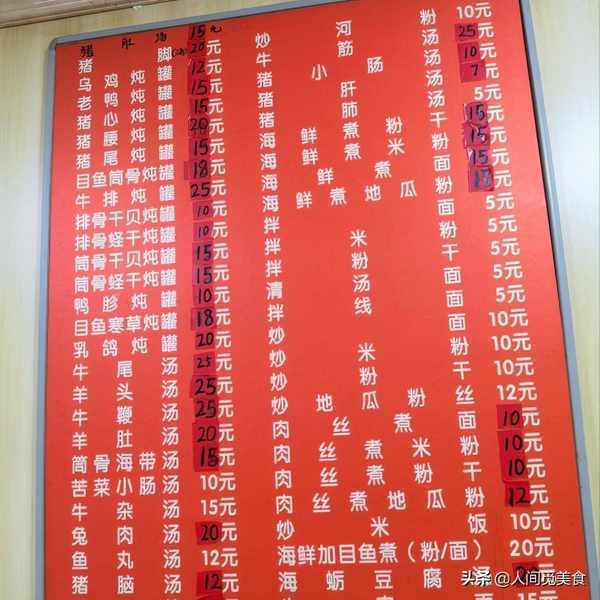 猪肚汤 15元
猪脚(汤) 20元
乌鸡炖罐 12元
老鸭炖罐 15元
猪心炖罐 15元
猪腰炖罐 20元
猪尾炖罐 15元
目鱼筒骨炖罐 18元
牛排炖罐 25元
排骨干贝炖罐 10元
排骨蛏干炖罐 10元
筒骨干贝炖罐 15元
筒骨蛏干炖罐 15元
鸭胗炖罐 10元
目鱼寒草炖罐 18元
乳鸽炖罐 20元
牛尾汤 25元
羊头汤 25元
牛鞭汤 25元
羊肚汤 20元
筒骨海带汤 15元
苦菜小肠汤 10元
牛杂汤 15元
兔肉汤 20元
鱼丸汤 12元
猪脑汤 12元
炒河粉 10元
牛筋汤 25元
猪小肠汤 10元
猪肝汤 7元
猪肺汤 5元
海鲜煮粉干 15元
海鲜煮米粉 15元
海鲜煮面 15元
海鲜煮地瓜粉 15元
拌面 5元
拌米粉 5元
拌粉干 5元
清汤面 5元
拌线面 5元
炒面 10元
炒米粉 10元
炒粉干 10元
炒地瓜粉丝 12元
肉丝煮面 10元
肉丝煮米粉 10元
肉丝煮粉干 10元
肉丝煮地瓜粉 12元
炒米饭 10元
海鲜加目鱼煮（粉/面） 20元
海蛎豆腐
15元
头条 @人间觅美食